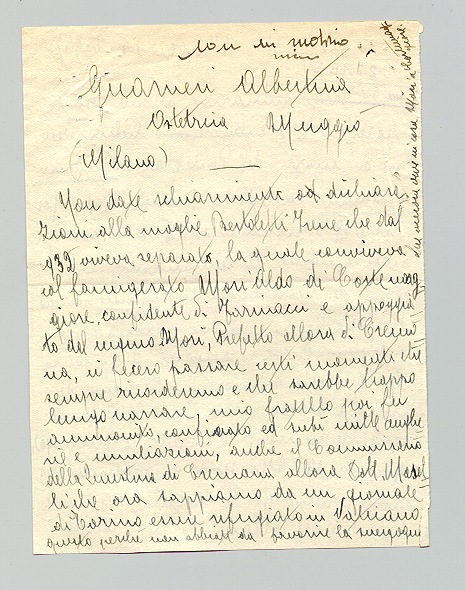 Guarneri Albertina
Ostetrica Muggiò
(Milano)
Non date schiarimenti od dichiara
zioni alla moglie Bertoletti Irene che dal
932 viveva separato, la quale conviveva
col famigerato Mori Aldo di Costa
giore, confidente di Farinacci e appoggia
to del cugino Mori, Prefetto allora di Cremo
na, ci fecero passare certi momenti che
sempre ricorderemo e che sarebbe troppo
lungo narrare, mio fratello poi fu
ammonito, confinato ed subì mille anghe
rie e umiliazioni, anche il Commissario
della Questura di Cremona allora Dott.
li che ora sappiamo da un giornale
di Torino essere rifugiato in Vaticano
questo perché non abbiate da favorire la